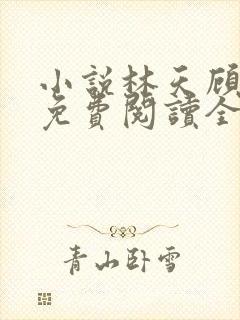 小說林天顧
免費閱讀全
青山卧雪